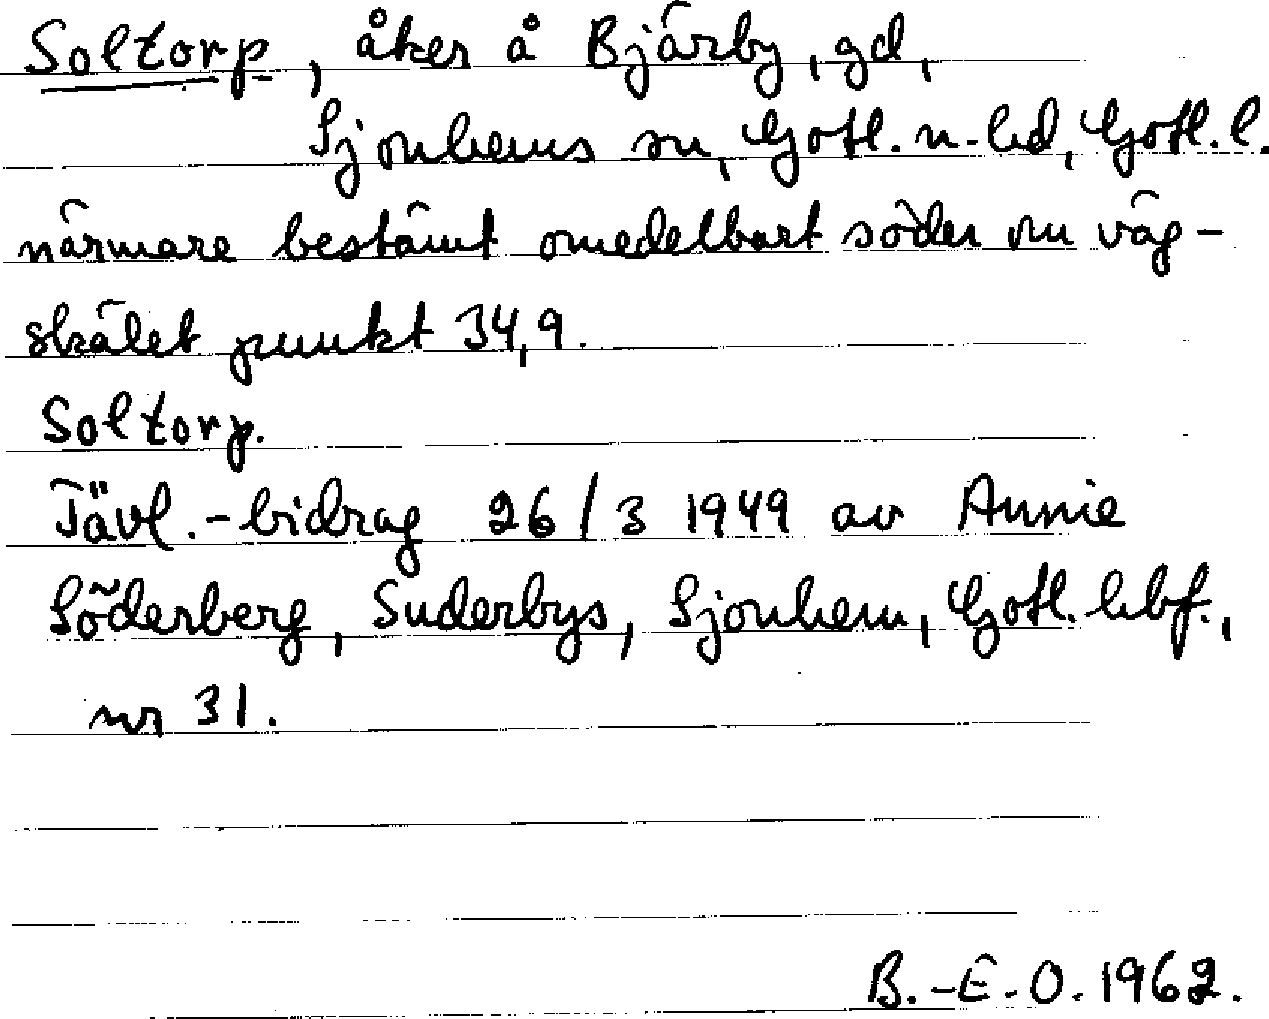 Soltorp, åker å Bjärby, gd,
Sjonhems sn, Gotl. n. hd, Gotl. l.
närmare bestämt omedelbart söder om väg-
skälet punkt 34,9.
Soltorp.
Tävl.-bidrag 26/3 1949 av Annie
Söderberg, Suderbys, Sjonhem, Gotl. hbf.,
nr 31.
B.-E.O. 1962.